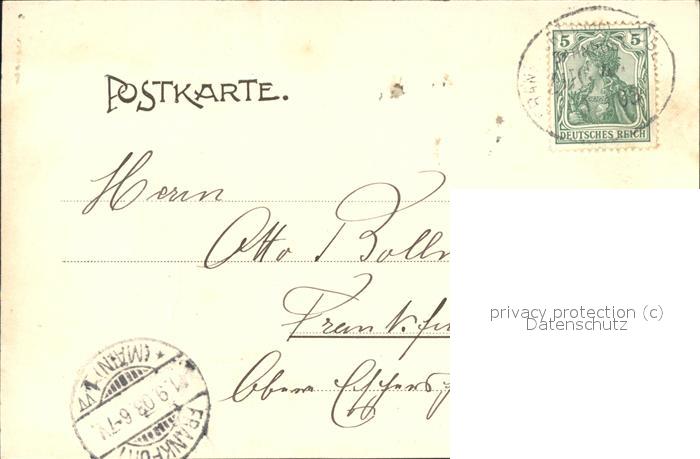 POSTKARTE.
5 5
DEUTSCHES REICH
Herrn
Otto Boll
Frankfu
Obere
FRANKFURT (MAIN) 1. VV
1.9.03. 6-7 N.
privacy protection (c)
Datenschutz